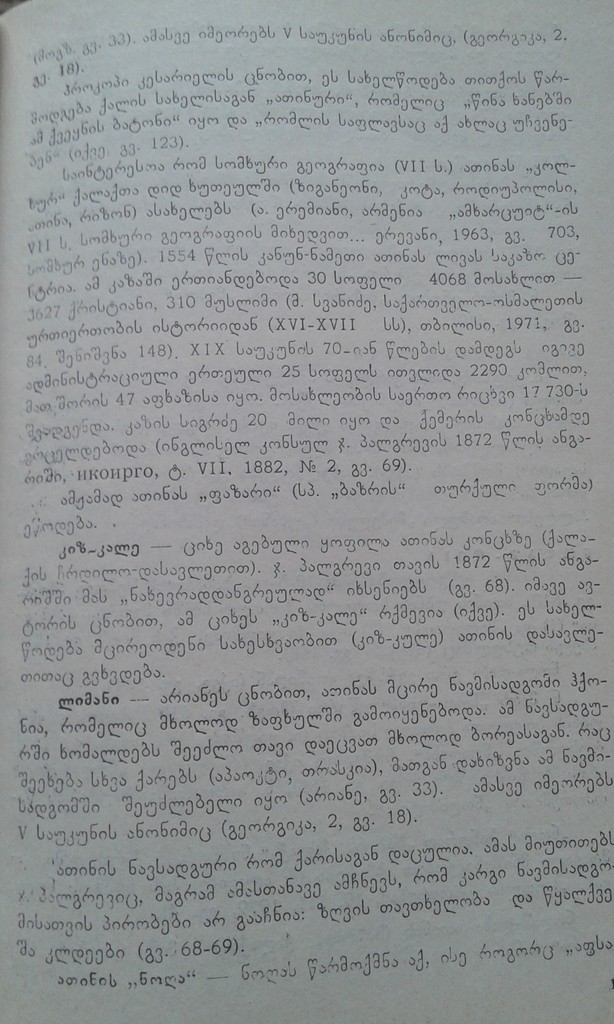 (მოგზ. გვ. 33). ამასვე იმეორებს V საუკუნის ანონიმიც, (გეორგიკა, 2.
გვ. 18).
პროკოპი კესარიელის ცნობით, ეს სახელწოდება თითქოს წარ-
მოდგება ქალის სახელისაგან „ათინური“, რომელიც „წინა ხანებში
ამ ქვეყნის ბატონი“ იყო და „რომლის საფლავსაც აქ ახლაც უჩვენე-
ბენ“ (იქვე. გვ. 123).
საინტერესოა რომ სომხური გეოგრაფია (VII ს.) ათინას „კოლ-
ხურ“ ქალაქთა დიდ ხუთეულში (ზიგანეონი, კოტა, როდიუპოლისი,
ათინა, რიზონ) ასახელებს (ა. ერემიანი, არმენია „ამხარცუიტ“-ის
VII ს. სომხური გეოგრაფიის მიხედვით... ერევანი, 1963, გვ. 703,
სომხურ ენაზე). 1554 წლის კანუნ-ნამეთი ათინას ლივას საკაზო ცე-
ნტრია. ამ კაზაში ერთიანდებოდა 30 სოფელი 4068 მოსახლით —
3627 ქრისტიანი, 310 მუსლიმი (მ. სვანიძე, საქართველო-ოსმალეთის
ურთიერთობის ისტორიიდან (XVI-XVII სს), თბილისი, 1971, გვ.
84, შენიშვნა 148). XIX საუკუნის 70-იან წლების დამდეგს იგივე
ადმინისტრაციული ერთეული 25 სოფელს ითვლიდა 2290 კომლით,
მათ შორის 47 აფხაზისა იყო. მოსახლეობის საერთო რიცხვი 17 730-ს
შეადგენდა. კაზის სიგრძე 20 მილი იყო და ქემერის კონცხამდე
ვრცელდებოდა (ინგლისელ კონსულ ჯ. პალგრევის 1872 წლის ანგა-
რიში, икоирго, ტ. VII, 1882, № 2, გვ. 69).
ამჟამად ათინას „ფაზარი“ (სპ. „ბაზრის“ თურქული ფორმა)
ეწოდება.
კიზ-კალე — ციხე აგებული ყოფილა ათინას კონცხზე (ქალა-
ქის ჩრდილო-დასავლეთით). ჯ. პალგრევი თავის 1872 წლის ანგა-
რიშში მას „ნახევრადდანგრეულად“ იხსენიებს (გვ. 68). იმავე ავ-
ტორის ცნობით, ამ ციხეს „კიზ-კალე“ რქმევია (იქვე). ეს სახელ-
წოდება მცირეოდენი სახესხვაობით (კიზ-კულე) ათინის დასავლე-
თითაც გვხვდება.
ლიმანი — არიანეს ცნობით, ათინას მცირე ნავმისადგომი ჰქო-
ნია, რომელიც მხოლოდ ზაფხულში გამოიყენებოდა. ამ ნავსადგუ-
რში ხომალდებს შეეძლო თავი დაეცვათ მხოლოდ ბორეასაგან. რაც
შეეხება სხვა ქარებს (აპაოკტი, თრასკია), მათგან დახიზვნა ამ ნავმი-
სადგომში შეუძლებელი იყო (არიანე, გვ. 33). ამასვე იმეორებს
V საუკუნის ანონიმიც (გეორგიკა, 2, გვ. 18).
ათინის ნავსადგური რომ ქარისაგან დაცულია. ამას მიუთითებს
პალგრევიც, მაგრამ ამასთანავე ამჩნევს, რომ კარგი ნავმისადგო-
მისათვის პირობები არ გააჩნია: ზღვის თავთხელობა და წყალქვე-
შა კლდეები (გვ. 68-69).
ათინის „ნოღა“ — ნოღას წარმოქმნა აქ, ისე როგორც „აფსა